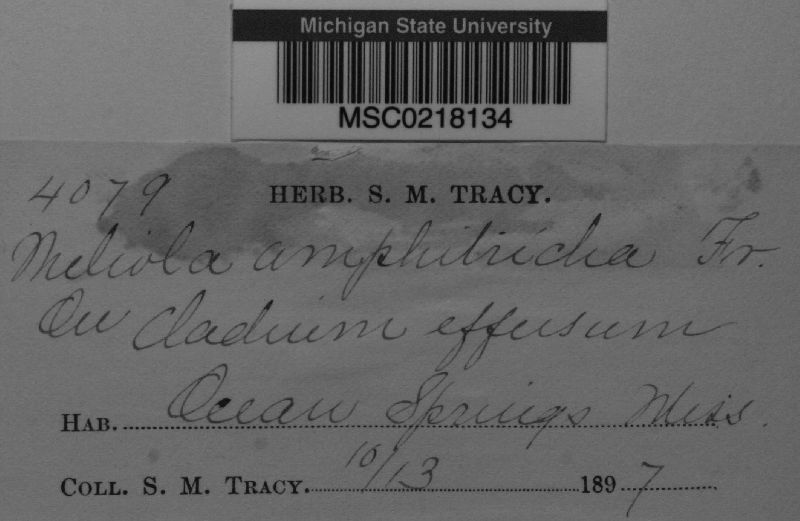 Michigan State University
MSC0218134
4079 HERB. S. M. TRACY.
Meliola amphitricha Fr.
On Cladium effusum
HAB. Ocean Springs Miss.
COLL. S. M. TRACY. 10/13 1897